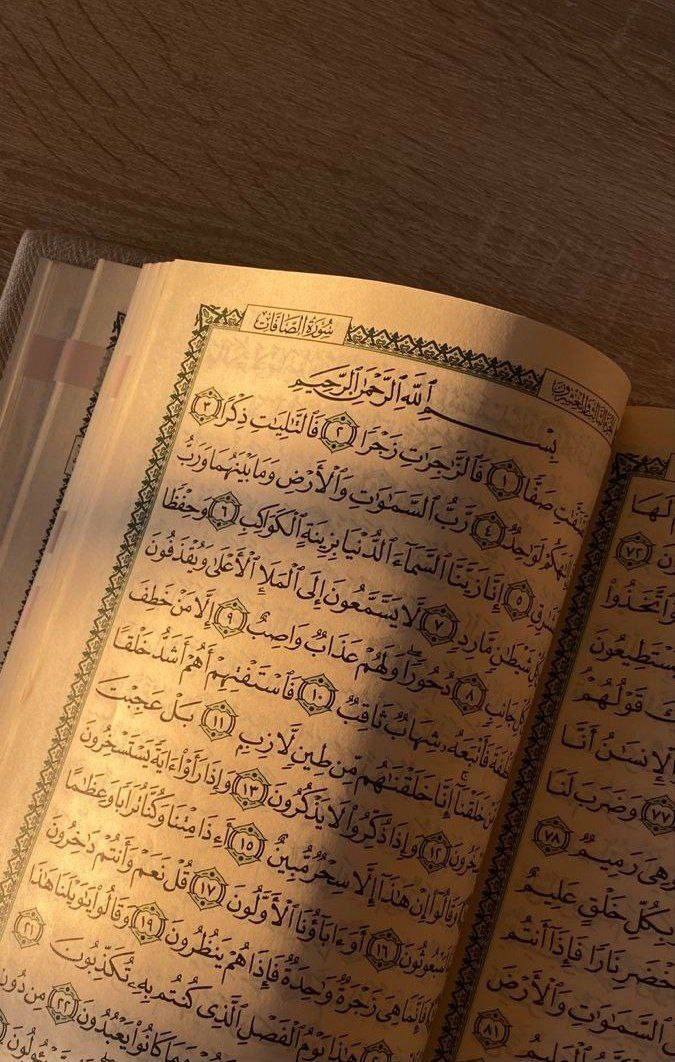 سُورَةُ الصَّافَّاتِ
بِسْمِ ٱللَّهِ ٱلرَّحْمَٰنِ ٱلرَّحِيمِ
صَفًّا ١ فَٱلزَّٰجِرَٰتِ زَجْرًا ٢ فَٱلتَّٰلِيَٰتِ ذِكْرًا ٣
لَوَٰحِدٌ ٤ رَّبُّ ٱلسَّمَٰوَٰتِ وَٱلْأَرْضِ وَمَا بَيْنَهُمَا وَرَبُّ
٥ إِنَّا زَيَّنَّا ٱلسَّمَآءَ ٱلدُّنْيَا بِزِينَةٍ ٱلْكَوَاكِبِ ٦ وَحِفْظًا
شَيْطَٰنٍ مَّارِدٍ ٧ لَّا يَسَّمَّعُونَ إِلَى ٱلْمَلَإِ ٱلْأَعْلَىٰ وَيُقْذَفُونَ
جَانِبٍ ٨ دُحُورًا وَلَهُمْ عَذَابٌ وَاصِبٌ ٩ إِلَّا مَنْ خَطِفَ
فَأَتْبَعَهُۥ شِهَابٌ ثَاقِبٌ ١٠ فَٱسْتَفْتِهِمْ أَهُمْ أَشَدُّ خَلْقًا
خَلَقْنَآ إِنَّا خَلَقْنَٰهُم مِّن طِينٍ لَّازِبٍ ١١ بَلْ عَجِبْتَ
١٢ وَإِذَا ذُكِّرُوا۟ لَا يَذْكُرُونَ ١٣ وَإِذَا رَأَوْا۟ ءَايَةً يَسْتَسْخِرُونَ
وَقَالُوٓا۟ إِنْ هَٰذَآ إِلَّا سِحْرٌ مُّبِينٌ ١٥ أَءِذَا مِتْنَا وَكُنَّا تُرَابًا وَعِظَٰمًا
١٦ أَوَءَابَآؤُنَا ٱلْأَوَّلُونَ ١٧ قُلْ نَعَمْ وَأَنتُمْ دَٰخِرُونَ
فَإِنَّمَا هِىَ زَجْرَةٌ وَٰحِدَةٌ فَإِذَا هُمْ يَنظُرُونَ ١٩ وَقَالُوا۟ يَٰوَيْلَنَا هَٰذَا
هَٰذَا يَوْمُ ٱلْفَصْلِ ٱلَّذِى كُنتُم بِهِۦ تُكَذِّبُونَ ٢١
وَمَا كَانُوا۟ يَعْبُدُونَ ٢٢ مِن دُونِ
لَهَا
٧٢
وَٱتَّخَذُوا۟
يَسْتَطِيعُونَ
قَوْلُهُمْ
ٱلْإِنسَٰنُ أَنَّا
٧٧ وَضَرَبَ لَنَا
وَهِىَ رَمِيمٌ ٧٨
بِكُلِّ خَلْقٍ عَلِيمٌ
نَارًا فَإِذَآ أَنتُم
ٱلسَّمَٰوَٰتِ وَٱلْأَرْضَ
٨١